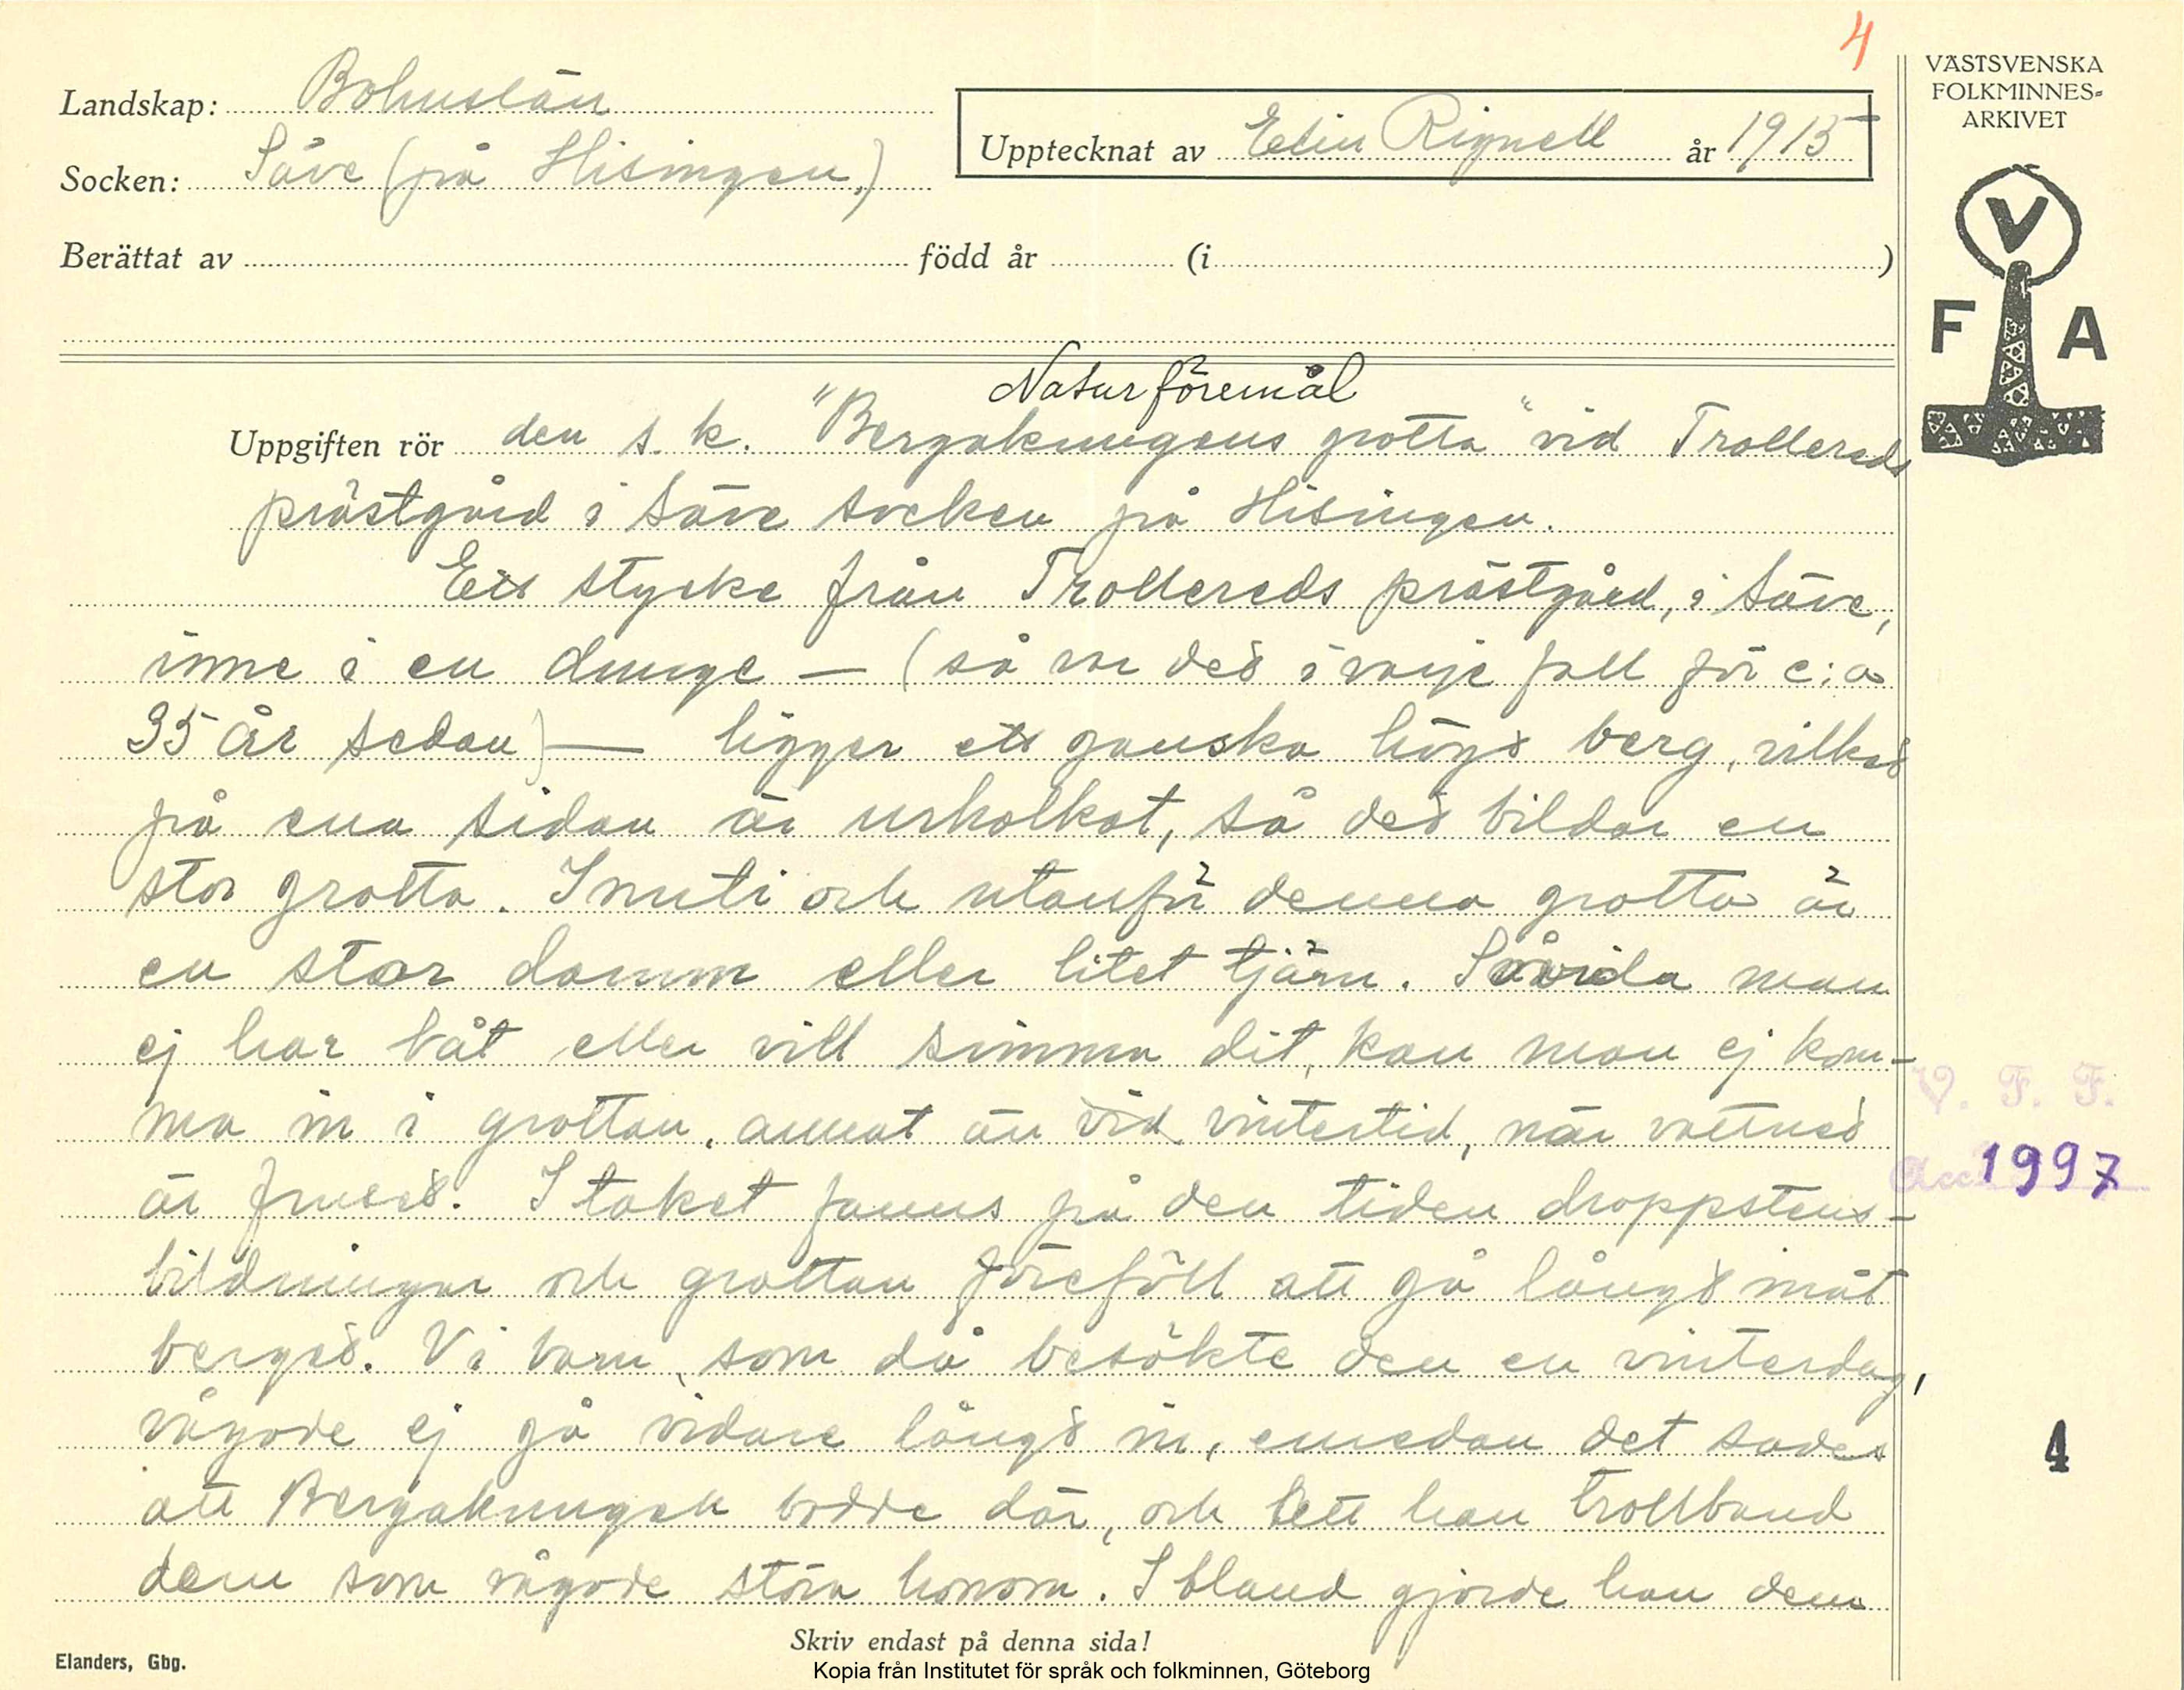 4
Landskap: Bohuslän
Socken: Säve (på Hisingen.)
Upptecknat av Elin Rignell år 1915
Berättat av född år (i )
VÄSTSVENSKA
FOLKMINNES-
ARKIVET
V
F A
Naturföremål
Uppgiften rör den s. k. "Bergakungens grotta" vid Trollereds
prästgård i Säve socken på Hisingen.
Ett stycke från Trollereds prästgård, i Säve,
inne i en dunge — (så var det i varje fall för c:a
35 år sedan) — ligger ett ganska högt berg, vilket
på ena sidan är urholkat, så det bildar en
stor grotta. Inuti och utanför denna grotta är
en stor damm eller litet tjärn. Såvida man
ej har båt eller vill simma dit, kan man ej kom-
ma in i grottan, annat än vid vintertid, när vattnet
är fruset. I taket fanns på den tiden droppstens-
bildningar och grottan föreföll att gå långt inåt
berget. Vi barn, som då besökte den en vinterdag,
vågade ej gå vidare långt in, emedan det sades
att Bergakungen bodde där, och att han trollband
dem som vågade störa honom. Ibland gjorde han dem
V. F. F.
Acc 1997
4
Skriv endast på denna sida!
Elanders, Gbg.
Kopia från Institutet för språk och folkminnen, Göteborg